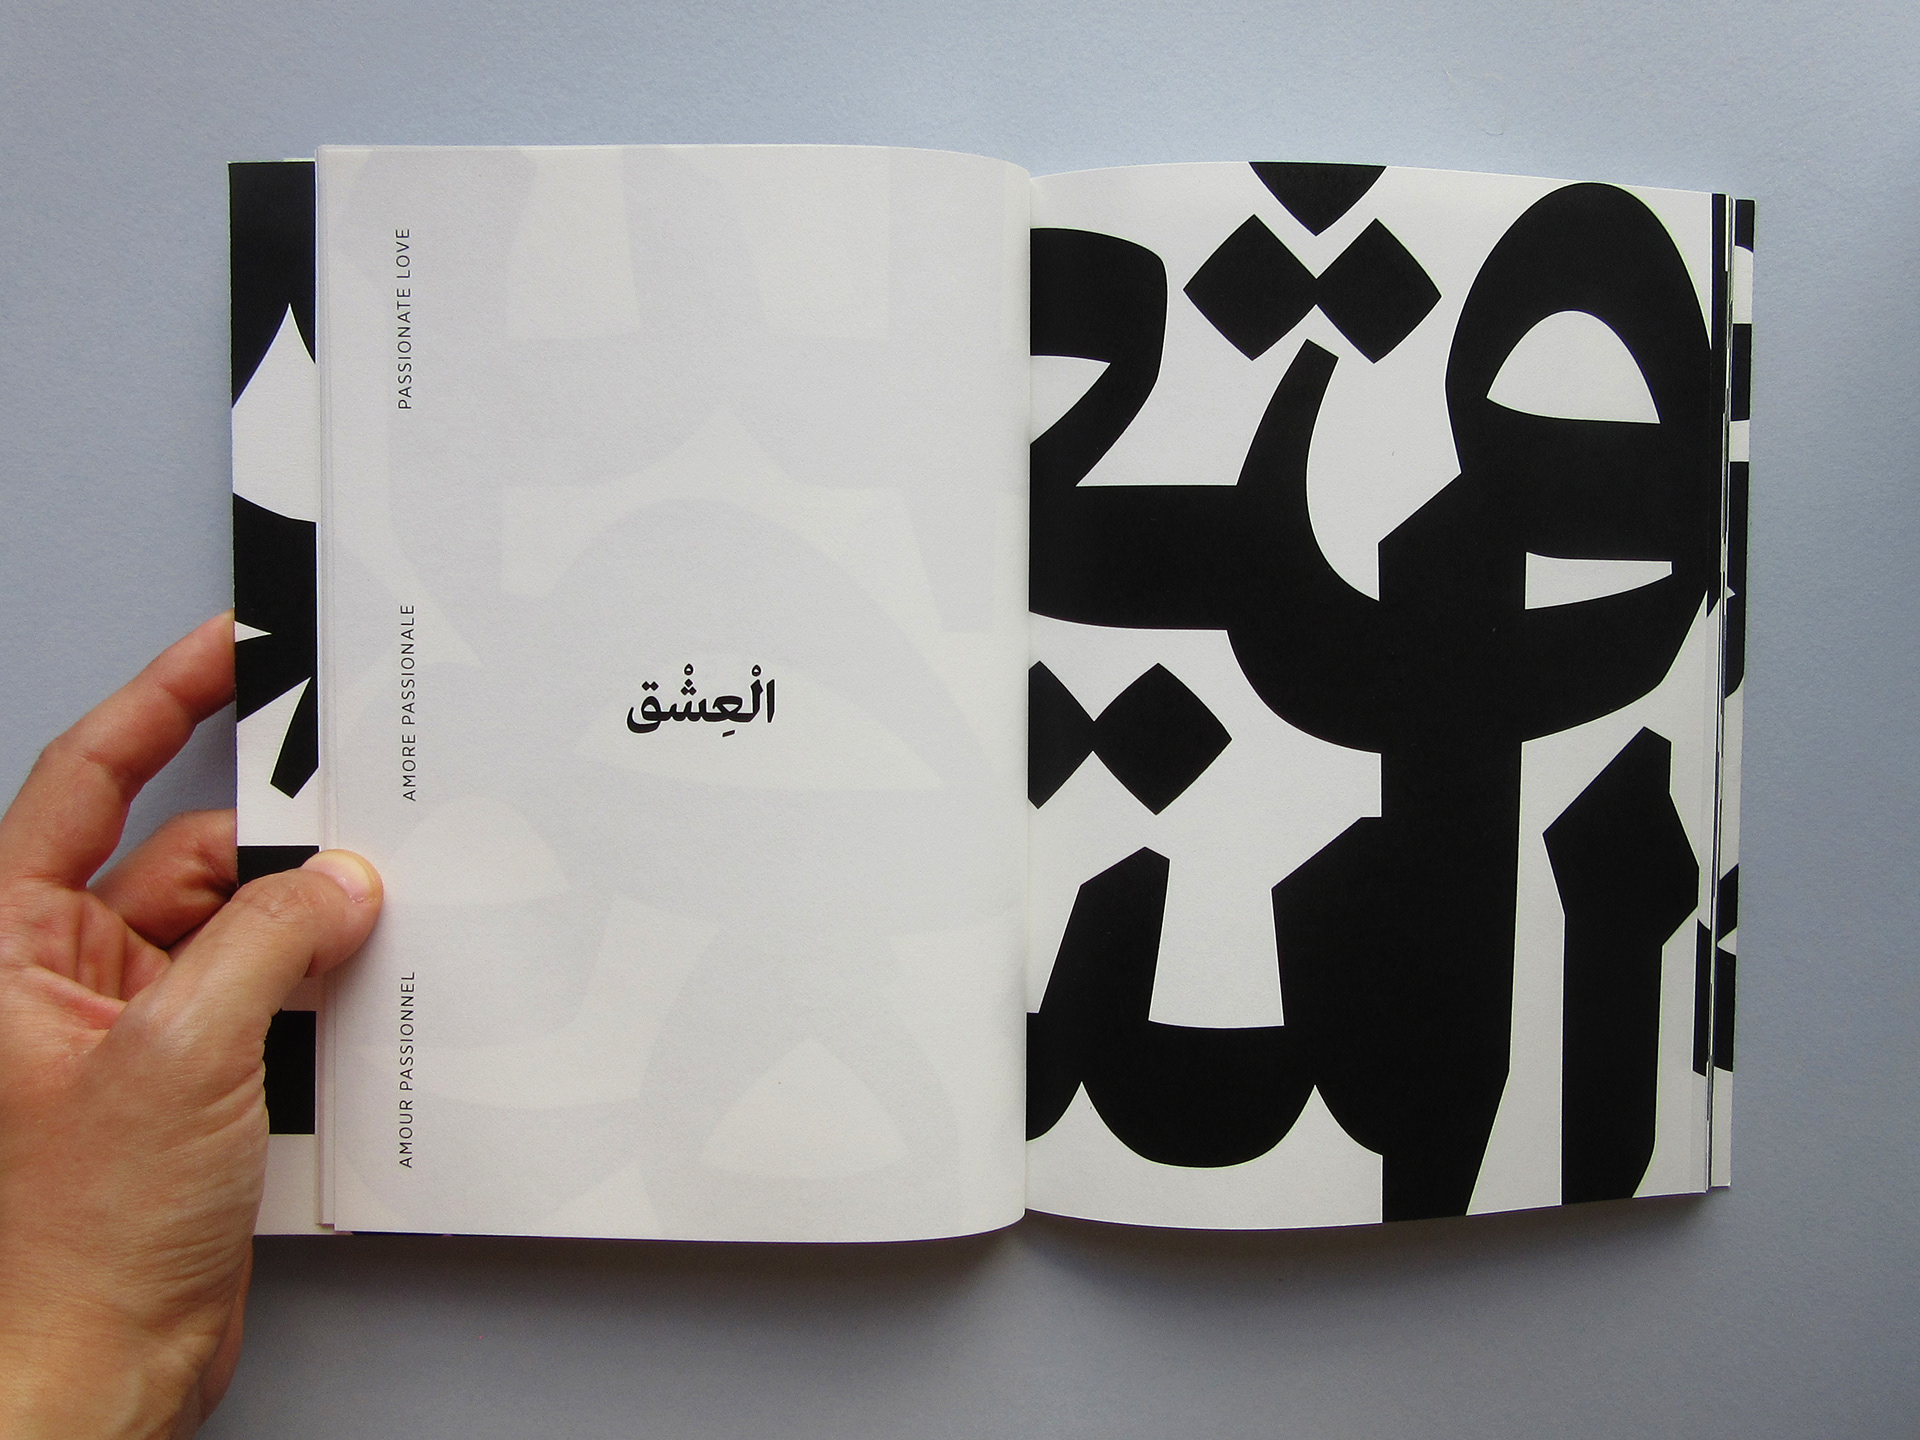 PASSIONATE LOVE
AMORE PASSIONALE
AMOUR PASSIONNEL
الْعِشْق